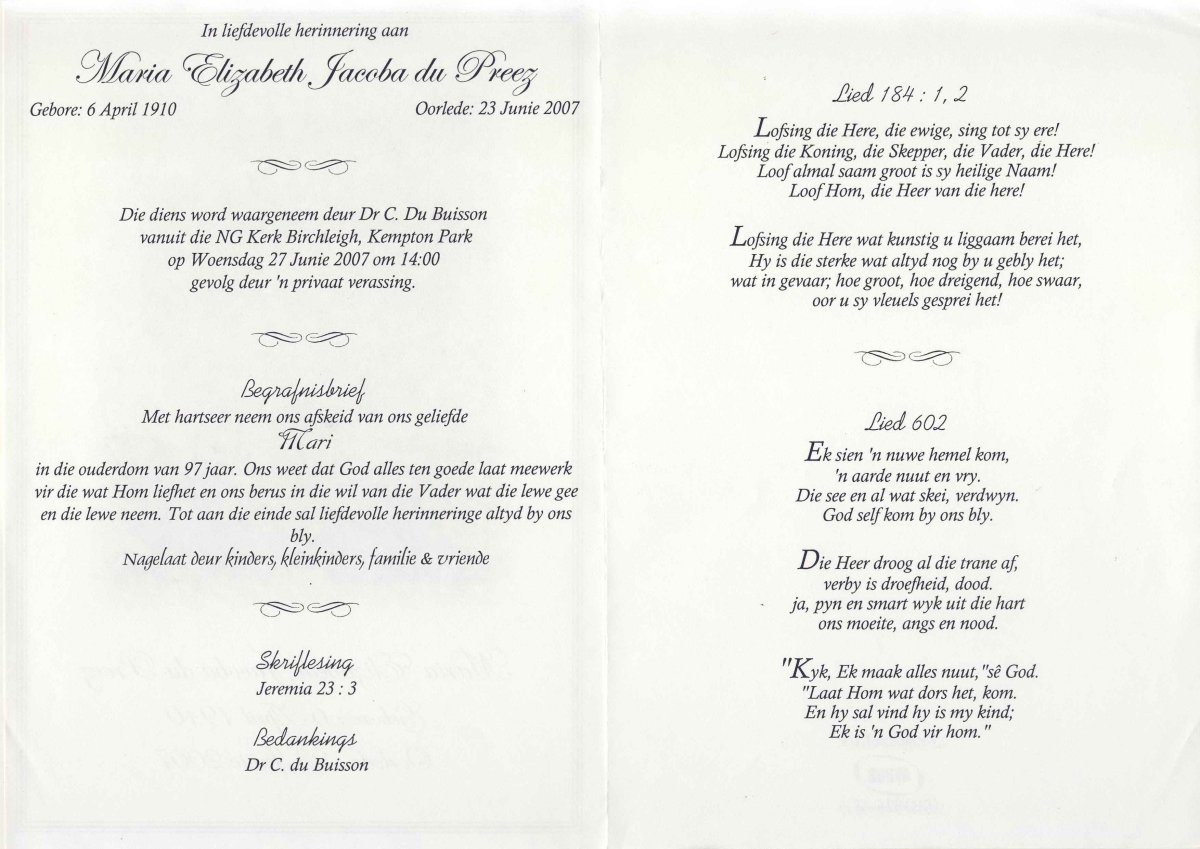 In liefdevolle herinnering aan
Maria Elizabeth Jacoba du Preez
Gebore: 6 April 1910 Oorlede: 23 Junie 2007
Die diens word waargeneem deur Dr C. Du Buisson
vanuit die NG Kerk Birchleigh, Kempton Park
op Woensdag 27 Junie 2007 om 14:00
gevolg deur 'n privaat verassing.
Begrafnisbrief
Met hartseer neem ons afskeid van ons geliefde
Mari
in die ouderdom van 97 jaar. Ons weet dat God alles ten goede laat meewerk
vir die wat Hom liefhet en ons berus in die wil van die Vader wat die lewe gee
en die lewe neem. Tot aan die einde sal liefdevolle herinneringe altyd by ons
bly.
Nagelaat deur kinders, kleinkinders, familie & vriende
Skriflesing
Jeremia 23 : 3
Bedankings
Dr C. du Buisson
Lied 184 : 1, 2
Lofsing die Here, die ewige, sing tot sy ere!
Lofsing die Koning, die Skepper, die Vader, die Here!
Loof almal saam groot is sy heilige Naam!
Loof Hom, die Heer van die here!
Lofsing die Here wat kunstig u liggaam berei het,
Hy is die sterke wat altyd nog by u gebly het;
wat in gevaar; hoe groot, hoe dreigend, hoe swaar,
oor u sy vleuels gesprei het!
Lied 602
Ek sien 'n nuwe hemel kom,
'n aarde nuut en vry.
Die see en al wat skei, verdwyn.
God self kom by ons bly.
Die Heer droog al die trane af,
verby is droefheid, dood.
ja, pyn en smart wyk uit die hart
ons moeite, angs en nood.
"Kyk, Ek maak alles nuut,"sê God.
"Laat Hom wat dors het, kom.
En hy sal vind hy is my kind;
Ek is 'n God vir hom."